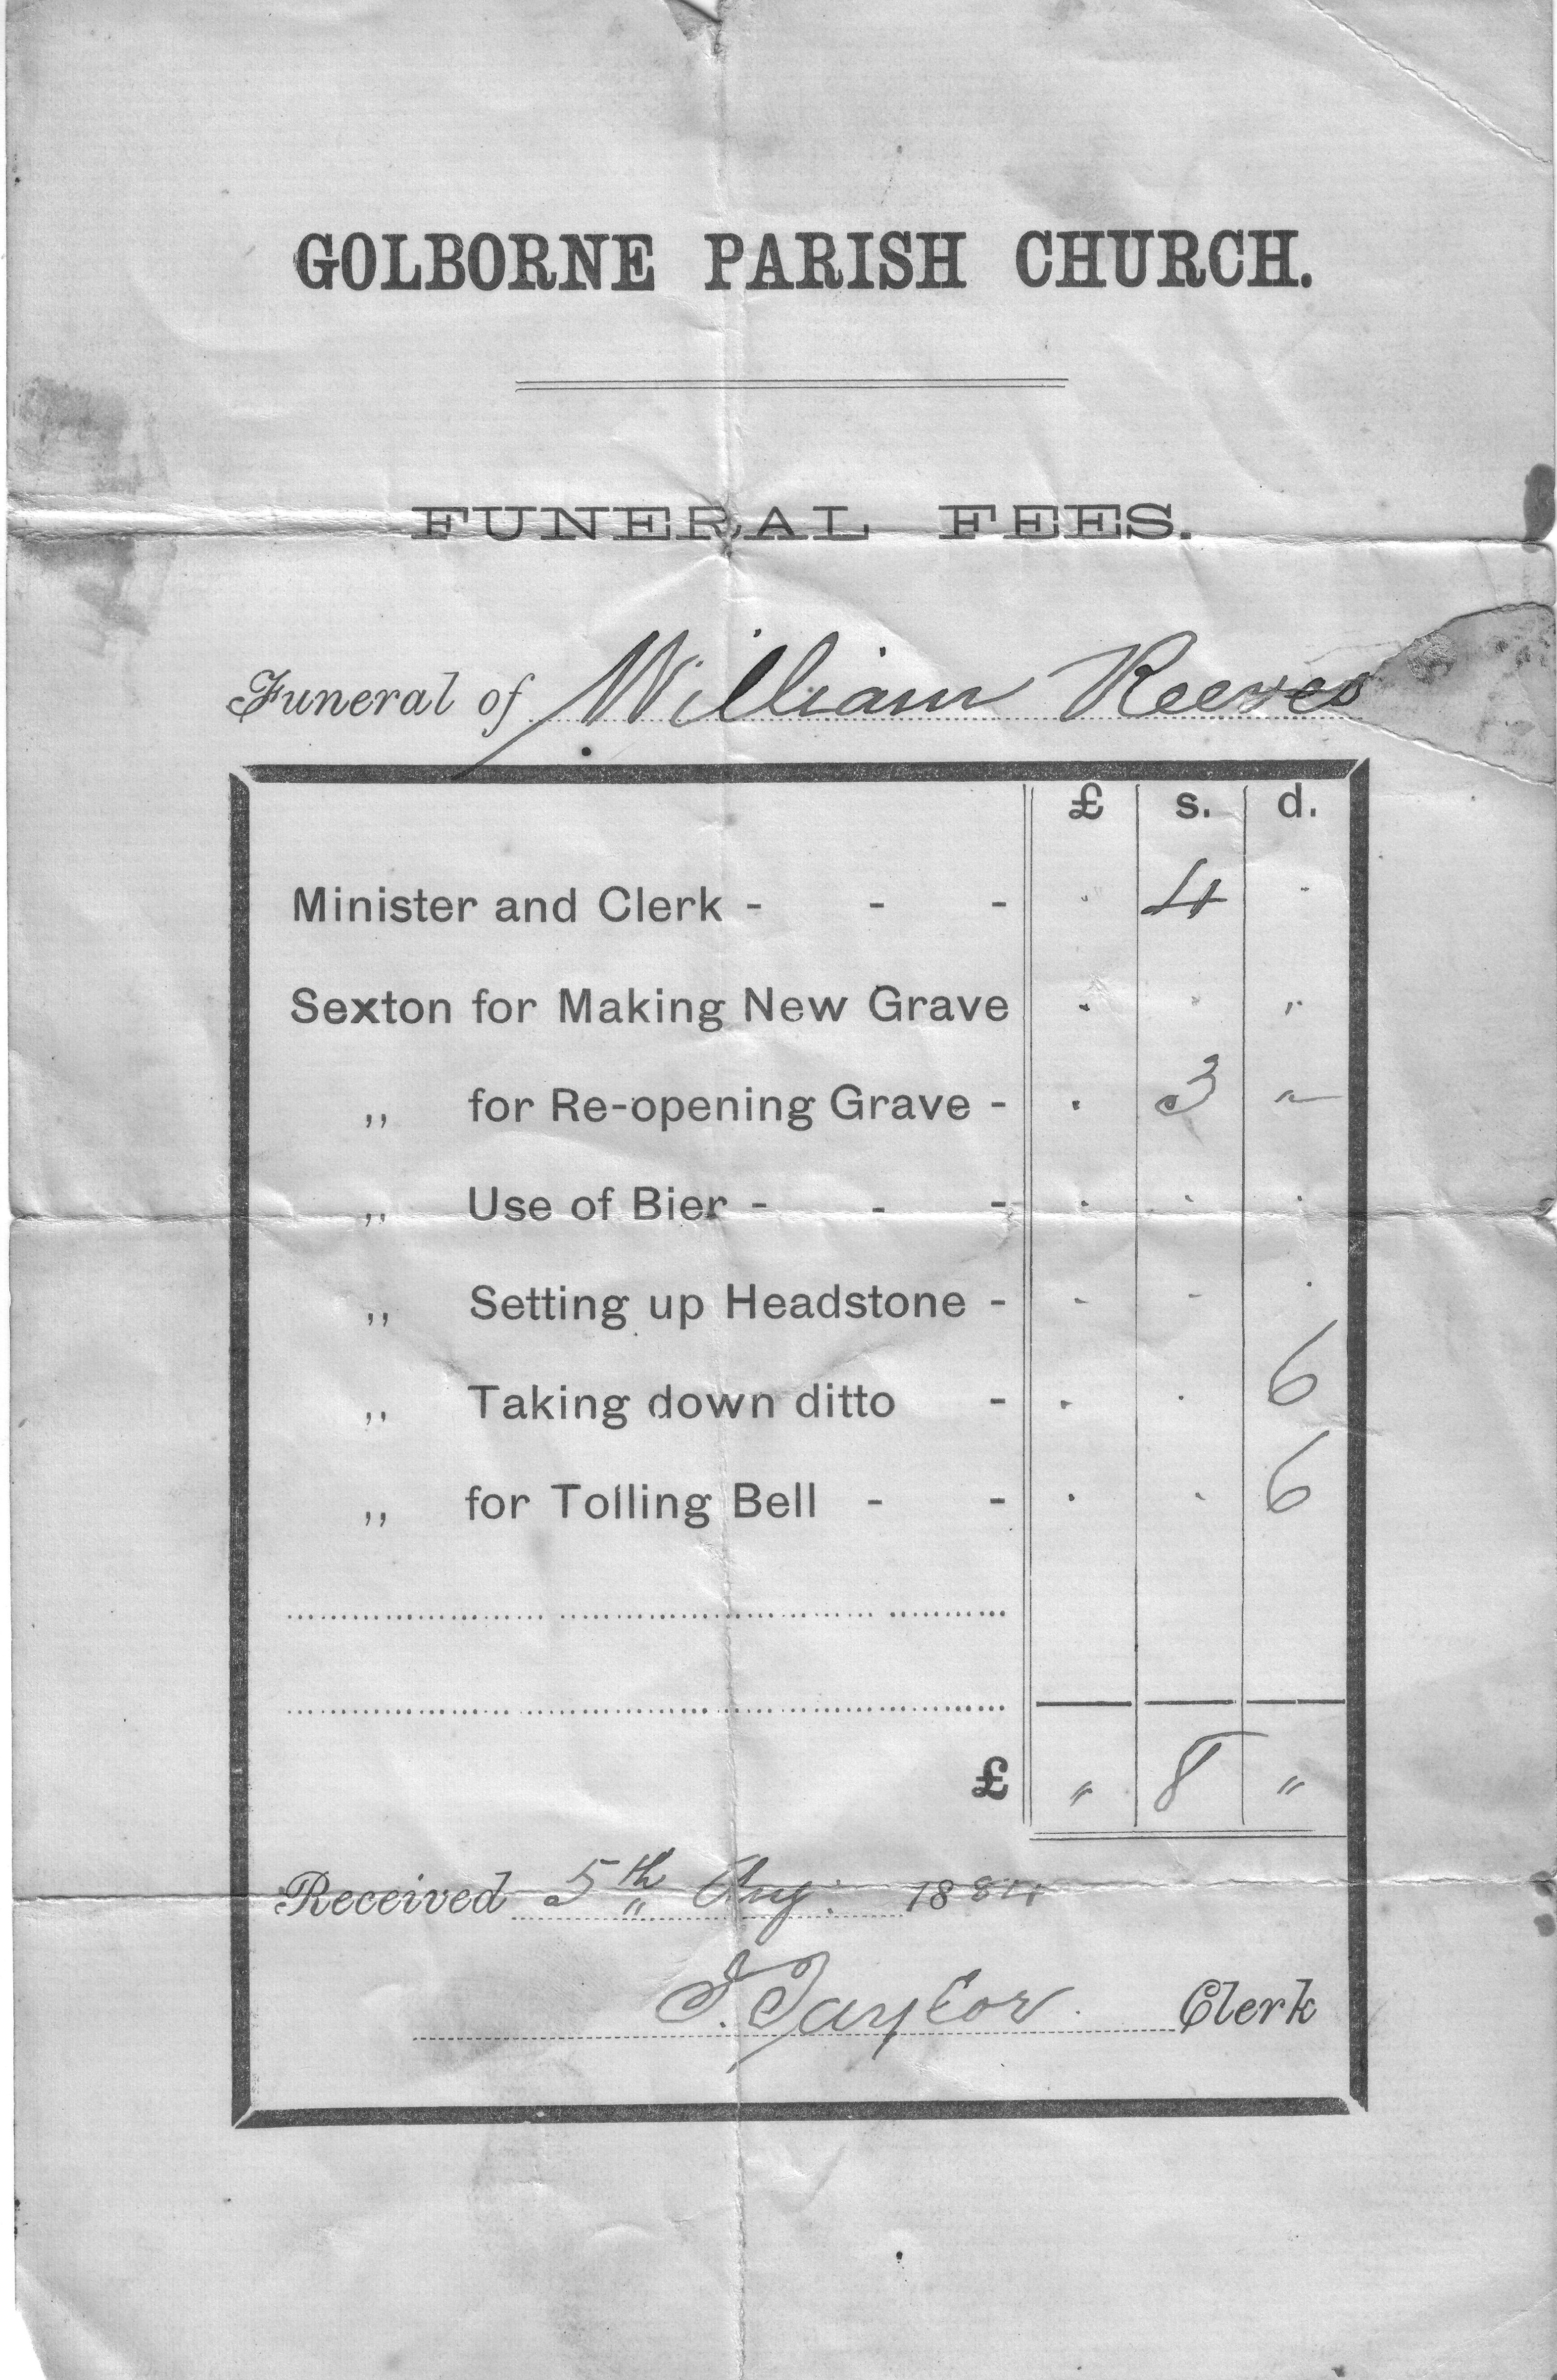 GOLBORNE PARISH CHURCH.
FUNERAL FEES.
Funeral of William Reeves
£ s. d.
Minister and Clerk - - - " 4 "
Sexton for Making New Grave . . "
„ for Re-opening Grave - . 3 "
„ Use of Bier - - - . . .
„ Setting up Headstone - - - .
„ Taking down ditto - . . 6
„ for Tolling Bell - - . . 6
£ " 8 "
Received 5th Aug. 1884
J. Taylor. Clerk